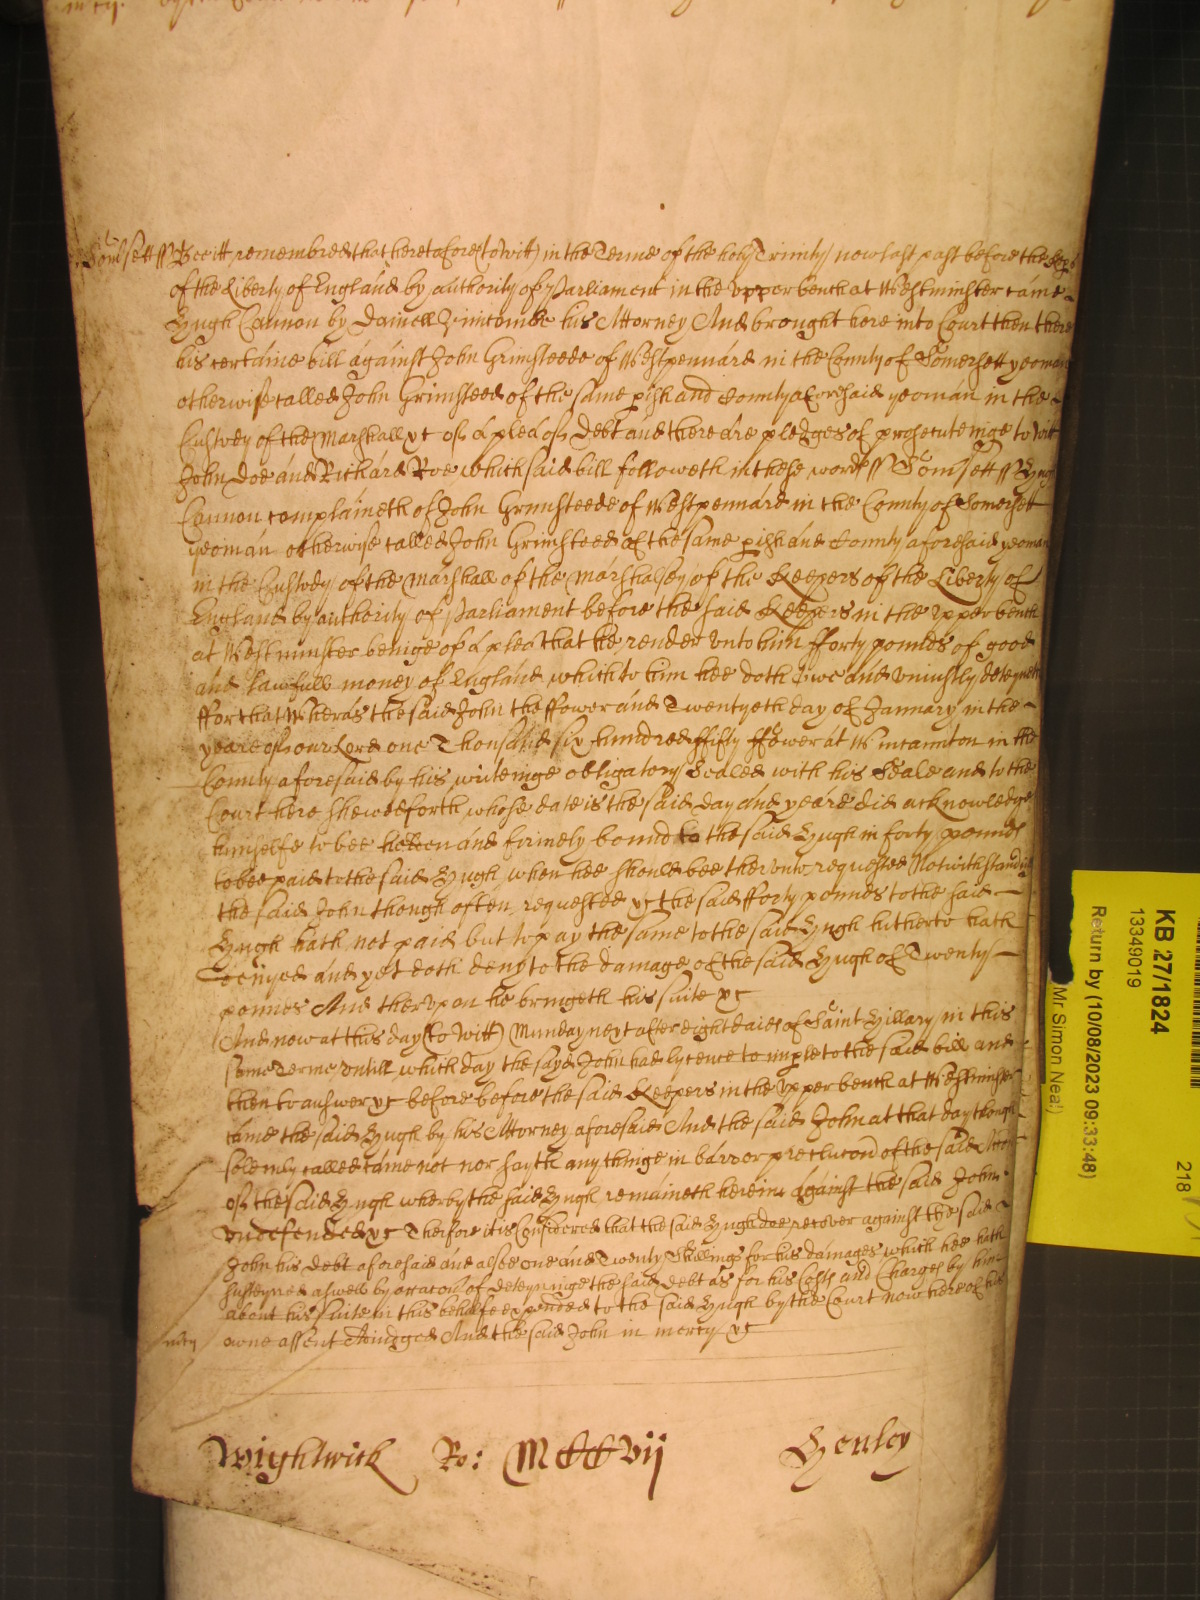 Somsett ss Bee itt remembred that heretofore (to witt) in the Terme of the holy Trinity now last past before the Keeps
of the Liberty of England by authority of Parliament in the upper bench at Westminster came
Hugh Cannon by Daniell his Attorney And brought here into Court then there
his certaine bill against John Grimsteede of Westpennard in the County of Somersett yeoman
otherwise called John Grimsteed of the same pish and County aforesaid yeoman in the
Custody of the Marshall &c of a plea of debt and there are pledges of prosecuteinge to witt
John Doe and Richard Roe which said bill followeth in these words ss Somsett ss Hugh
Cannon complaineth of John Grimsteede of Westpennard in the County of Somersett
yeoman otherwise called John Grimsteed of the same pish and County aforesaid yeoman
in the Custody of the Marshall of the Marshalsey of the Keepers of the Liberty of
England by authority of Parliament before the said Keepers in the upper bench
at Westminster beinge of a plea that he render unto him fforty pounds of good
and lawfull money of England which to him hee doth owe and uniustly deteyneth
ffor that Wheras the said John the ffower and Twentyeth day of January in the
yeare of our Lord one Thousand six hundred ffifty ffower at Wincaunton in the
County aforesaid by his writeinge obligatory Sealed with his Seale and to the
Court here shewed forth whose date is the said day and yeare did acknowledge
himselfe to bee and firmely bound to the said Hugh in forty pounds
to bee paid to the said Hugh when hee should bee therunto requested Notwithstandinge
the said John though often requested &c the said fforty pounds to the said
Hugh hath not paid but to pay the same to the said Hugh hitherto hath
denyed and yet doth deny to the damage of the said Hugh of Twenty
pounds And therupon he bringeth his suite &c
And now at this day (to witt) Munday next after eight daies of Saint Hillary in this
same Terme untill which day the sayd John had lycence to imple to the said bill and
then to answer &c before before the said Keepers in the upper bench at Westminster
came the said Hugh by his Attorney aforesaid And the said John at that day though
solemly called came not nor sayth any thinge in barr or preclucon of the said Accon
of the said Hugh wherby the said Hugh remaineth hereine against the said John
undefended &c Therfore itis Considered that the said Hugh doe recover against the said
John his debt aforesaid and alsoe one and Twenty Shillings for his damages which hee hath
susteyned aswell by occacon of deteyninge the said debt as for his Costs and Charges by him
about his suite in this behalfe expended to the said Hugh by the Court now here of his
mcy owne assent Adiudged And the said John in mercy &c
Wightwick Ro: MCCvij Henley
KB 27/1824
13349019
218
Return by (10/08/2023 09:33:48)
Mr Simon Neal)